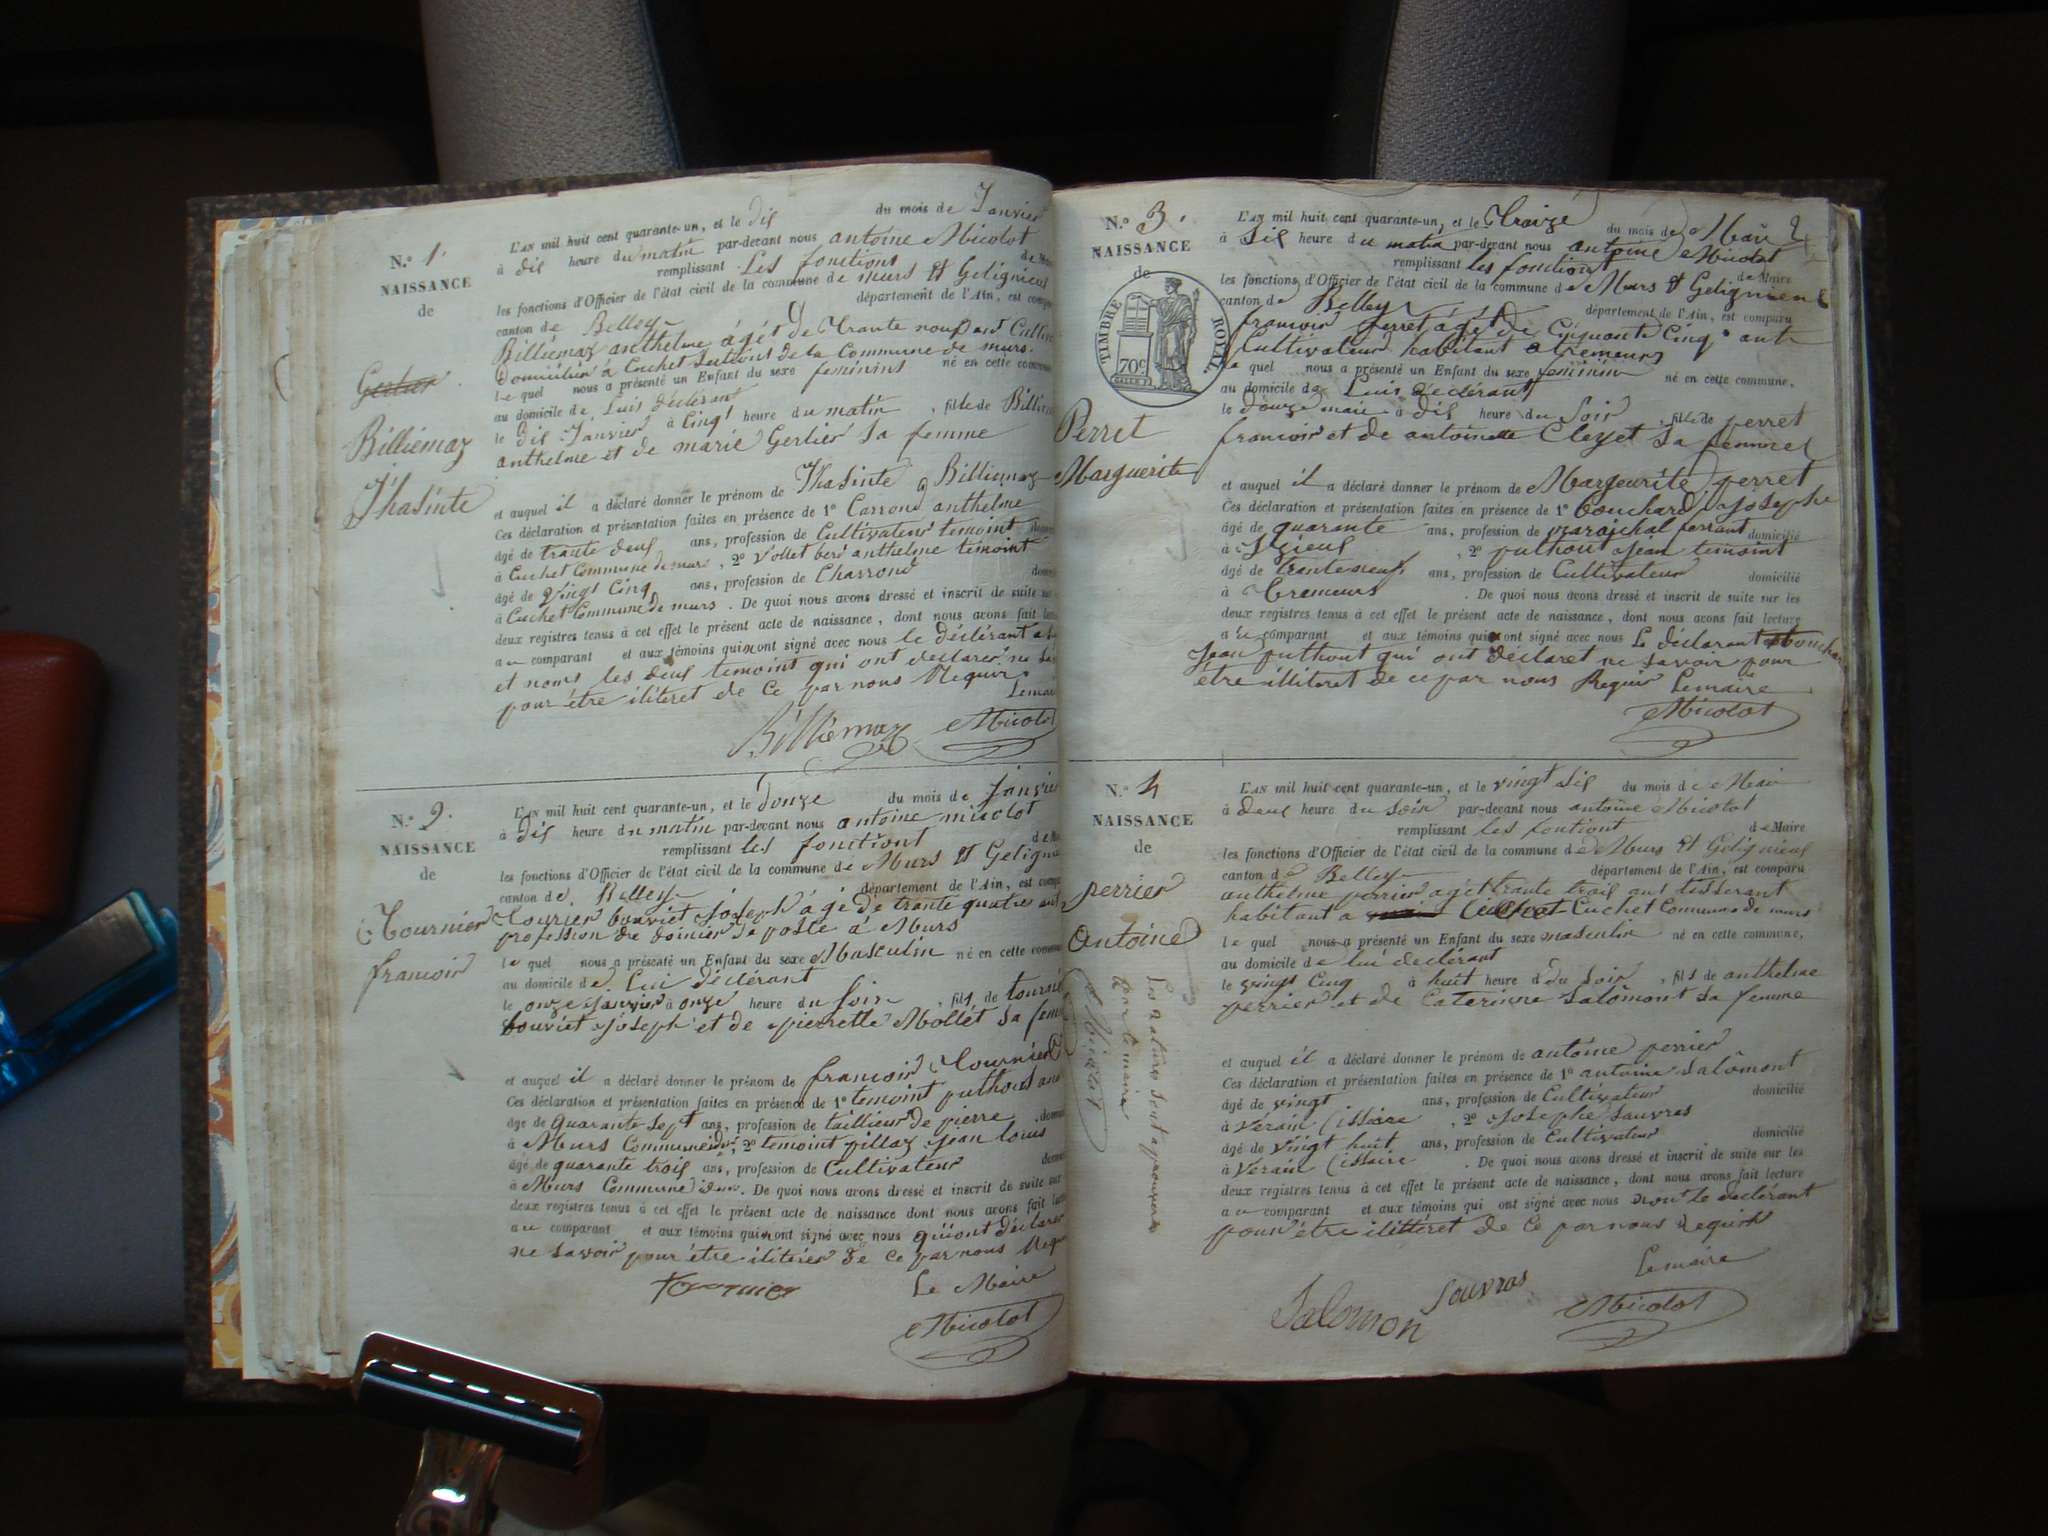 N.º 1.
NAISSANCE
de
Billiemaz
Jhasinte
L'AN mil huit cent quarante-un, et le dis du mois de Janvier
à dis heure du matin par-devant nous antoine Micolot
remplissant Les fonctions
les fonctions d'Officier de l'état civil de la commune de murs et Gelignieu
canton de Belley département de l'Ain, est
Billiemaz anthelme ágét de Trante
Domicilier a Cuchet de la Commune de murs.
le quel nous a présenté un Enfant du sexe feminins né en cette
au domicile de Luis déclérant
le dis Janvier à Cinq heure du matin, fille de
anthelme et de marie Gerlier sa femme
et auquel il a déclaré donner le prénom de Jhasinte Billiemaz
Ces déclaration et présentation faites en présence de 1º Carrond anthelme
âgé de trante deus ans, profession de Cultivateur temoint
à Cuchet Commune de murs, 2º anthelme temoint
âgé de vingt Cinq ans, profession de Charrond
à Cuchet Commune de murs. De quoi nous avons dressé et inscrit de suite sur
deux registres tenus à cet effet le présent acte de naissance, dont nous avons fait
au comparant et aux témoins qui ont signé avec nous le déclérant
et noms les deus temoint qui ont declarer ne
pour être iliteret de Ce par nous Requir
Billiemaz Micolot
N.º 2.
NAISSANCE
de
Tournier
francois
L'AN mil huit cent quarante-un, et le Douze du mois de
à dis heure du matin par-devant nous antoine micolot
remplissant les fonctiont
les fonctions d'Officier de l'état civil de la commune de Murs et
canton de Belley département de l'Ain, est
bouviet Joseph ágé de trante quatre
profession de de poste a Murs
le quel nous a présenté un Enfant du sexe Masculin né en cette
au domicile de Lui déclérant
le onze Janvier à onze heure du Soir, fils de
bouviet Joseph et de pierrette Mollet sa
et auquel il a déclaré donner le prénom de francois Tournier
Ces déclaration et présentation faites en présence de 1º temoint puthout
âgé de quarante sept ans, profession de taillieur de pierre
à Murs Commune, 2º temoint pillaz Jean louis
âgé de quarante trois ans, profession de Cultivateur
à Murs Commune. De quoi nous avons dressé et inscrit de suite sur
deux registres tenus à cet effet le présent acte de naissance dont nous avons fait
au comparant et aux témoins qui ont signé avec nous
ne savoir pour être de Ce par nous
Le Maire
Micolot
N.º 3.
NAISSANCE
de
TIMBRE ROYAL
70c
Perret
Marguerite
L'AN mil huit cent quarante-un, et le Traize du mois de Mai
à Sis heure du matin par-devant nous antoine Micolot
remplissant les fonctiont de Maire
les fonctions d'Officier de l'état civil de la commune de Murs et Gelignieu
canton de Belley département de l'Ain, est comparu
francois perret ágét de Cinquante Cinq ant
Cultivateur habitant a tremeurs
le quel nous a présenté un Enfant du sexe feminin né en cette commune,
au domicile de Luis déclérant
le douze mai à dis heure du Soir, fille de perret
francois et de antoinette Cleyet sa femme
et auquel il a déclaré donner le prénom de Margeurite perret
Ces déclaration et présentation faites en présence de 1º bouchard Josephe
âgé de quarante ans, profession de marajchal ferrant domicilié
à Izieus, 2º puthout Jean temoint
âgé de trante neuf ans, profession de Cultivateur domicilié
à Tremeurs. De quoi nous avons dressé et inscrit de suite sur les
deux registres tenus à cet effet le présent acte de naissance, dont nous avons fait lecture
au comparant et aux témoins qui ont signé avec nous Le déclarant
Jean puthout qui ont déclaret ne savoir pour
être illiteret de ce par nous Requir Lemaire
Micolot
N.º 4
NAISSANCE
de
perrier
Antoine
L'AN mil huit cent quarante-un, et le vingt sis du mois de Mai
à deus heure du soir par-devant nous antoine Micolot
remplissant les fontiont de Maire
les fonctions d'Officier de l'état civil de la commune de Murs et Gelignieus
canton de Belley département de l'Ain, est comparu
anthelme perrier agét trante trois ans tisserant
habitant a Cuchet Commune de murs
le quel nous a présenté un Enfant du sexe masculin né en cette commune,
au domicile de lui declérant
le vingt Cinq à huit heure du Soir, fils de anthelme
perrier et de Caterinne Salômont sa femme
et auquel il a déclaré donner le prénom de antoine perrier
Ces déclaration et présentation faites en présence de 1º antoine Salômont
âgé de vingt ans, profession de Cultivateur domicilié
à, 2º Josephe Sauvras
âgé de vingt huit ans, profession de Cultivateur domicilié
à. De quoi nous avons dressé et inscrit de suite sur les
deux registres tenus à cet effet le présent acte de naissance, dont nous avons fait lecture
au comparant et aux témoins qui ont signé avec nous nont le declérant
pour être ilitteret de Ce par nous Requir
Lemaire
Salomon Souvras Micolot